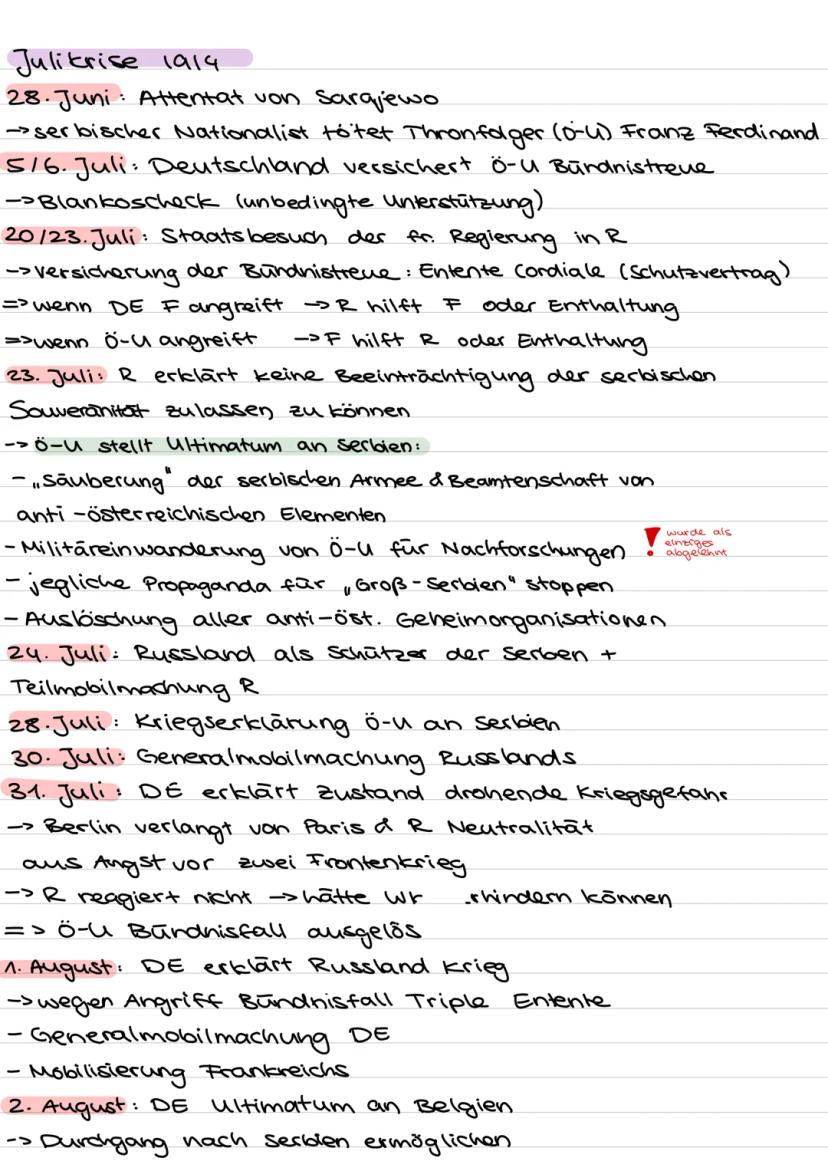 Julikrise 1914
28. Juni: Attentat von Sarajewo
-> serbischer Nationalist tötet Thronfolger (Ö-U) Franz Ferdinand
5/6. Juli: Deutschland versichert Ö-U Bündnistreue
-> Blankoscheck (unbedingte Unterstützung)
20/23. Juli: Staatsbesuch der fr. Regierung in R
-> Versicherung der Bündnistreue: Entente Cordiale (Schutzvertrag)
=> wenn DE F angreift -> R hilft F oder Enthaltung
=> wenn Ö-U angreift -> F hilft R oder Enthaltung
23. Juli: R erklärt keine Beeinträchtigung der serbischen
Souveränität zulassen zu können
-> Ö-U stellt Ultimatum an Serbien:
- „Säuberung" der serbischen Armee & Beamtenschaft von
anti-österreichischen Elementen
- Militäreinwanderung von Ö-U für Nachforschungen ! wurde als
einziges
abgelehnt
- jegliche Propaganda für „Groß-Serbien" stoppen
- Auslöschung aller anti-öst. Geheimorganisationen
24. Juli: Russland als Schützer der Serben +
Teilmobilmachung R
28. Juli: Kriegserklärung Ö-U an Serbien
30. Juli: Generalmobilmachung Russlands
31. Juli: DE erklärt Zustand drohende Kriegsgefahr
-> Berlin verlangt von Paris & R Neutralität
aus Angst vor zwei Frontenkrieg
-> R reagiert nicht -> hätte rhindern können
=> Ö-U Bündnisfall ausgelös
1. August: DE erklärt Russland Krieg
-> wegen Angriff Bündnisfall Triple Entente
- Generalmobilmachung DE
- Mobilisierung Frankreichs
2. August: DE Ultimatum an Belgien
-> Durchgang nach Serbien ermöglichen